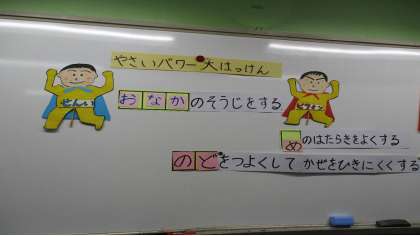 やさいパワー大はっけん
せんい
おなかのそうじをする
ビタミン
めのはたらきをよくする
のどをつよくして かぜをひきにくくする